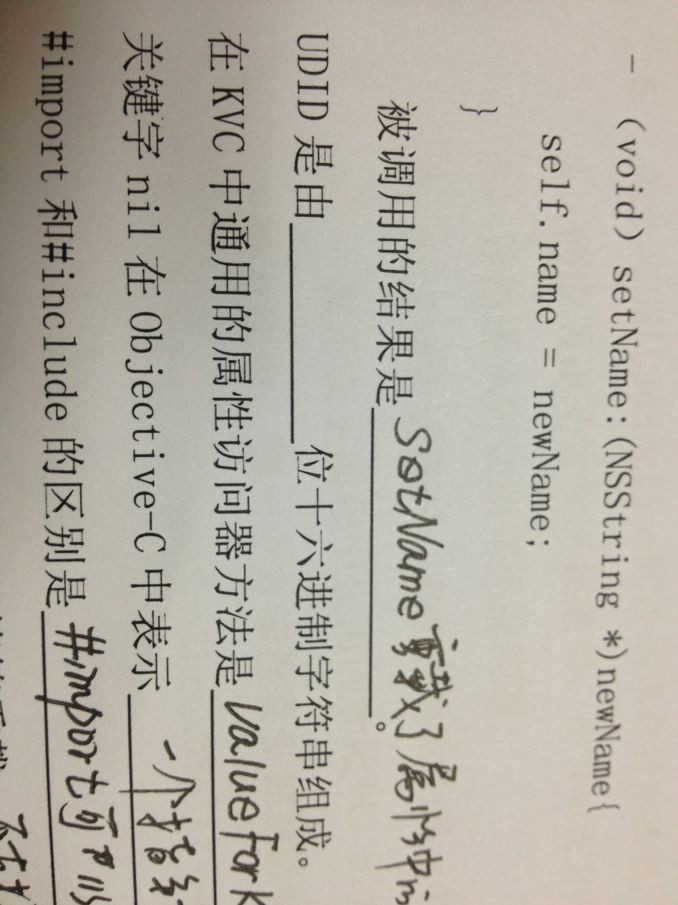 - (void) setName:(NSString *)newName{
self.name = newName;
}
被调用的结果是 SetName重载了属性中
UDID 是由________位十六进制字符串组成。
在 KVC 中通用的属性访问器方法是 valueFork
关键字 nil 在 Objective-C 中表示 一个指针
#import 和#include 的区别是 #import可以